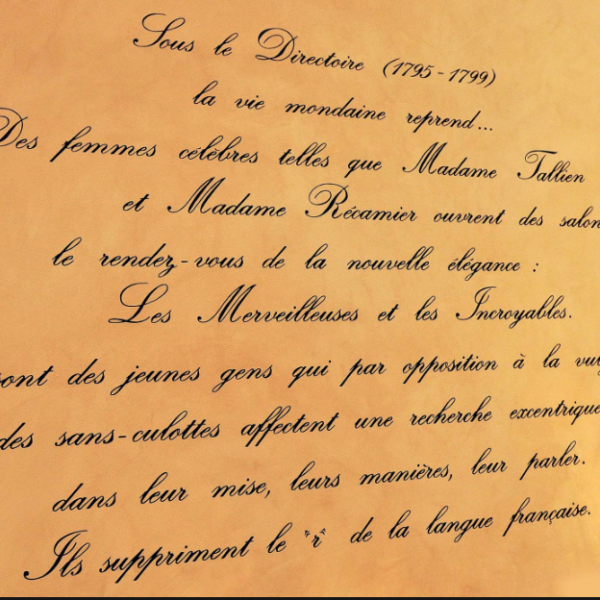 Sous le Directoire (1795-1799)
la vie mondaine reprend...
Des femmes célèbres telles que Madame Tallien
et Madame Récamier ouvrent des salon
le rendez-vous de la nouvelle élégance :
Les Merveilleuses et les Incroyables.
sont des jeunes gens qui par opposition à la vulg
des sans-culottes affectent une recherche excentrique
dans leur mise, leurs manières, leur parler.
Ils suppriment le "r" de la langue française.